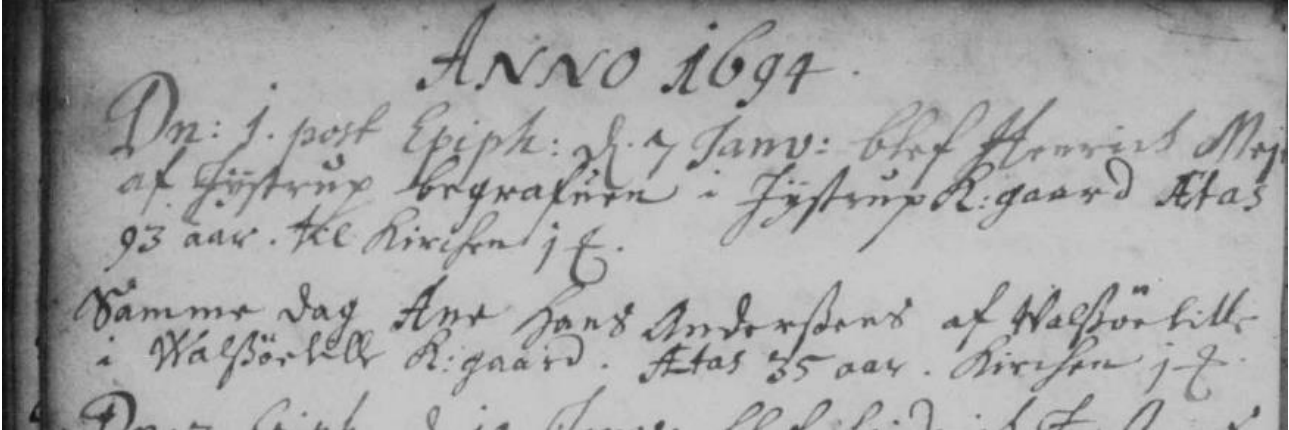 ANNO 1694.
Dn: 1. post Epiph: d. 7 Janv: blef Henrich Meje
af Jystrup begrafuen i Jystrup K:gaard Ætas
93 aar. til Kirchen j
Samme dag Ane Hans Anderßens af Walßöelille
i Walßöelille K:gaard. Ætas 35 aar. Kirchen j
Epiph